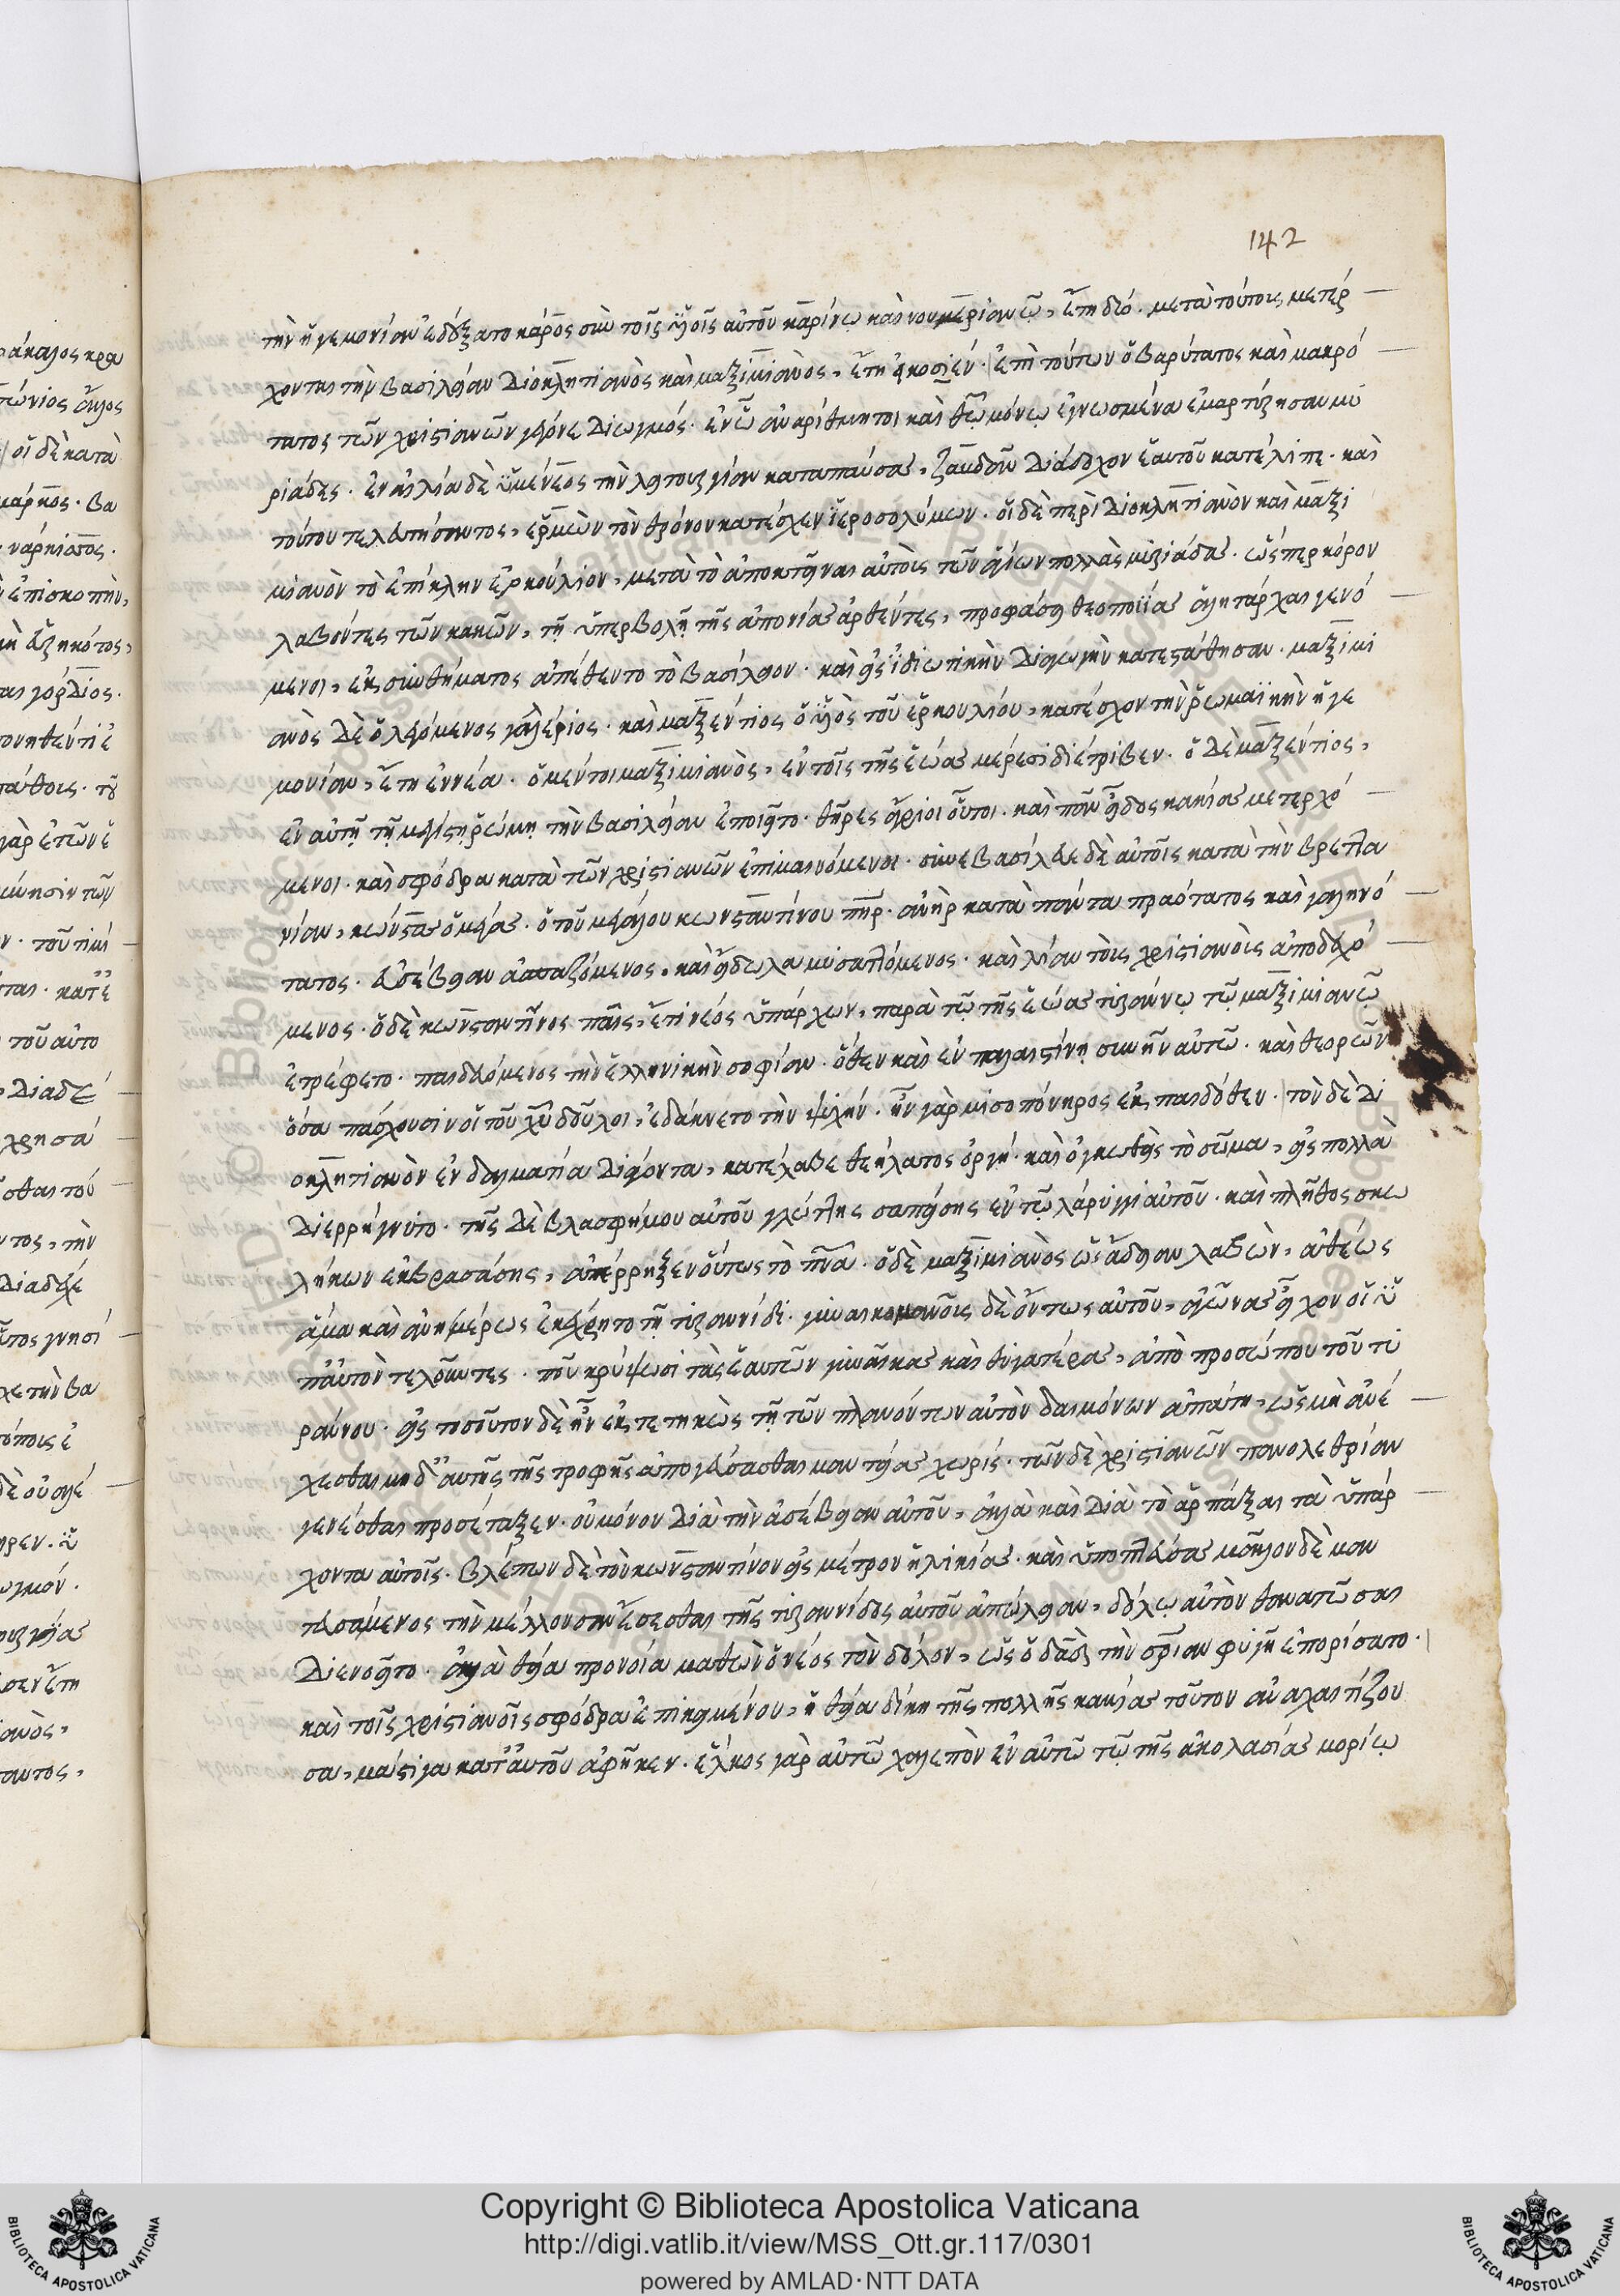 142
τὴν ἡγεμονίαν ἐδέξατο κάρος σὺν τοῖς υἱοῖς αὐτοῦ καρίνω καὶ νουμεριανῶ, ἔτη δύο. μετὰ τούτοις μετέρ
χονται τὴν βασιλείαν Διοκλητιανὸς καὶ μαξιμιανὸς, ἔτη εἴκοσιέν. ἐπὶ τούτων ὁ βαρύτατος καὶ μακρό
τατος τῶν χριστιανῶν γέγονε διωγμός. ἐν ὧ ἀναρίθμητοι καὶ θῶ μόνω ἐγνωσμέναι ἐμαρτύρησαν μυ
ριάδες. ἐν αἰλία δὲ ὑμέναιος τὴν λειτουργίαν καταπαύσας, ζαμβδᾶν διάδοχον ἑαυτοῦ κατέλιπε. καὶ
τούτου τελευτήσαντος, ἑρμὼν τὸν θρόνον κατέσχεν ἱεροσολύμων. οἱ δὲ περὶ Διοκλητιανὸν καὶ μαξι
μιανὸν τὸ ἐπίκλην ἑρκούλιον, μετὰ τὸ ἀποκτεῖναι αὐτοὺς τῶν ἁγίων πολλὰς μυριάδας. ὥσπερ κόρον
λαβόντες τῶν κακῶν, τῆ ὑπερβολῆ τῆς ἀπονίας ἀρθέντες, προφάσει θεοποιΐας ἀλητάρχαι γενό
μενοι, ἐκ συνθήματος ἀπέθεντο τὸ βασίλειον. καὶ εἰς ἰδιωτικὴν διαγωγὴν κατεστάθησαν. μαξιμι
ανὸς δὲ ὁ λεγόμενος γαλέριος. καὶ μαξέντιος ὁ υἱὸς τοῦ ἑρκουλίου, κατέσχον τὴν ῥωμαϊκὴν ἡγε
μονίαν, ἔτη ἐννέα. ὁ μέντοι μαξιμιανὸς, ἐν τοῖς τῆς ἑώας μέρεσι διέτριβεν. ὁ δὲ μαξέντιος,
ἐν αὐτῆ τῆ μεγίστη ῥώμη τὴν βασιλείαν ἐποιεῖτο. θῆρες ἄγριοι οὗτοι. καὶ πᾶν εἶδος κακίας μετερχό
μενοι. καὶ σφόδρα κατὰ τῶν χριστιανῶν ἐπιμαινόμενοι. συνεβασίλευε δὲ αὐτοῖς κατὰ τὴν βρεττα
νίαν, κώνστας ὁ μέγας. ὁ τοῦ μεγάλου κωνσταντίνου πηρ. ἀνὴρ κατὰ πάντα πραότατος καὶ γαληνό
τατος. εὐσέβειαν ἀσπαζόμενος, καὶ εἴδωλα μυσαττόμενος. καὶ λίαν τοὺς χριστιανοὺς ἀποδεχό
μενος. ὁ δὲ κωνσταντῖνος παῖς, ἔτι νέος ὑπάρχων, παρὰ τῶ τῆς ἑώας τυράννω τῶ μαξιμιανῶ
ἐτρέφετο. παιδευόμενος τὴν ἑλληνικὴν σοφίαν. ὅθεν καὶ ἐν παλαιστίνη συνῆν αὐτῶ. καὶ θεορῶν
ὅσα πάσχουσιν οἱ τοῦ χυ δοῦλοι, ἐδάκνετο τὴν ψυχήν. ἦν γὰρ μισοπόνηρος ἐκ παιδόθεν. τὸν δὲ δι
οκλητιανὸν ἐν δαλματία διάγοντα, κατέλαβε θεήλατος ὀργή. καὶ ὀγκωθεὶς τὸ σῶμα, εἰς πολλὰ
διερρήγνυτο. τῆς δὲ βλασφήμου αὐτοῦ γλώττης σαπείσης ἐν τῶ λάρυγγι αὐτοῦ. καὶ πλῆθος σκω
λήκων ἐκβρασάσης, ἀπέρρηξεν οὕτως τὸ πνα. ὁ δὲ μαξιμιανὸς ὡς ἄδειαν λαβὼν, ἀθέως
ἅμα καὶ ἀνημέρως ἐκέχρητο τῆ τυραννίδι. γυναικομανοῦς δὲ ὄντος αὐτοῦ, ἀγῶνας εἶχον οἱ ὑ
π' αὐτὸν τελοῦντες. ποῦ κρύψωσι τὰς ἑαυτῶν γυναῖκας καὶ θυγατέρας, ἀπὸ προσώπου τοῦ τυ
ράννου. εἰς τοσοῦτον δὲ ἦν ἐκτετηκὼς τῆ τῶν πλανόντων αὐτὸν δαιμόνων ἀπάτη, ὡς μὴ ἀνέ
χεσθαι μηδ' αὐτῆς τῆς τροφῆς ἀπογεύσασθαι μαντείας χωρίς. τῶν δὲ χριστιανῶν πανολεθρίαν
γενέσθαι προσέταξεν. οὐ μόνον διὰ τὴν ἀσέβειαν αὐτοῦ, ἀλλὰ καὶ διὰ τὸ ἁρπάξαι τὰ ὑπάρ
χοντα αὐτοῖς. βλέπων δὲ τὸν κωνσταντίνον εἰς μέτρον ἡλικίας. καὶ ὑποπτεύσας μᾶλλον δὲ μαν
τευσάμενος τὴν μέλλουσαν ἔσεσθαι τῆς τυραννίδος αὐτοῦ ἀπώλειαν, δόλω αὐτὸν θανατῶσαι
διενοεῖτο. ἀλλὰ θεία προνοία μαθὼν ὁ νέος τὸν δόλον, ὡς ὁ δαδ τὴν σρίαν φυγῆ ἐπορίσατο.
καὶ τοῖς χριστιανοῖς σφόδρα ἐπικειμένου, ἡ θεία δίκη τῆς πολλῆς κακίας τοῦτον ἀναχαιτίζου
σα, μάστιγα κατ' αὐτοῦ ἀφῆκεν. ἕλκος γὰρ αὐτῶ χαλεπὸν ἐν αὐτῶ τῶ τῆς ἀκολασίας μορίω
Copyright © Biblioteca Apostolica Vaticana
http://digi.vatlib.it/view/MSS_Ott.gr.117/0301
powered by AMLAD·NTT DATA
BIBLIOTECA APOSTOLICA VATICANA
BIBLIOTECA APOSTOLICA VATICANA